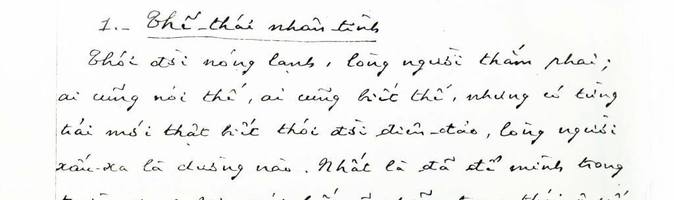 1._ Thế-thái nhân-tình
Thói đời nóng lạnh, lòng người thắm phai;
ai cũng nói thế, ai cũng biết thế, nhưng có từng
trải mới thật biết thói đời điên-đảo, lòng người
xấu-xa là dường nào. Nhất là đã để mình trong